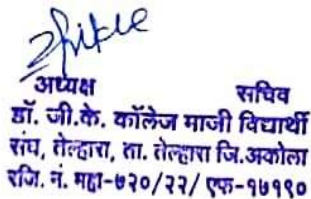 अध्यक्ष सचिव
डॉ. जी.के. कॉलेज माजी विद्यार्थी
संघ, तेल्हारा, ता. तेल्हारा जि.अकोला
रजि. नं. महा-७२०/२२/ एफ-१७१९०